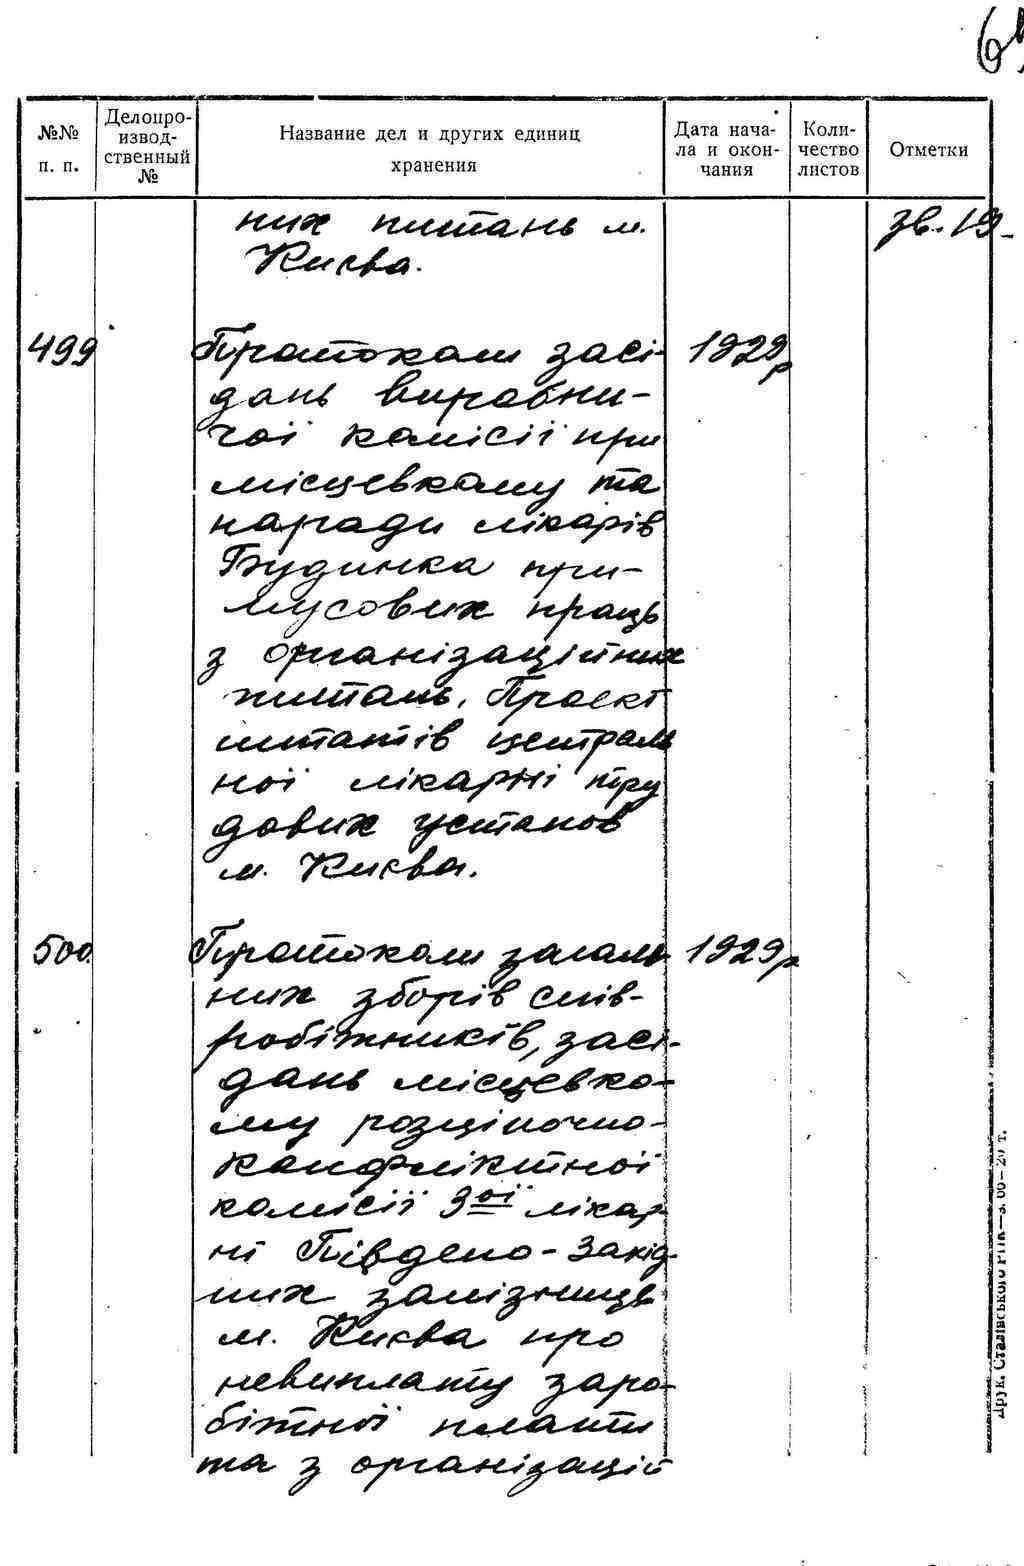 №№ п. п.
Делопро-
извод-
ственный
№
Название дел и других единиц
хранения
Дата нача-
ла и окон-
чания
Коли-
чество
листов
Отметки
них питань м.
Києва.
зв. 19-
499 Протоколи засі- 1929р
дань виробни-
чої комісії при
місцевкому та
наради лікарів
Будинка при-
мусових праць
з організаційних
питань. Проект
штатів централь
ної лікарні тру
дових установ
м. Києва.
500. Протоколи загаль 1929р
них зборів спів-
робітників, засі-
дань місцевко-
му розціночно-
конфліктної
комісії 3ої лікар
ні Південо-Захід-
них залізниць
м. Києва про
невиплату заро-
бітної плати
та з організацій